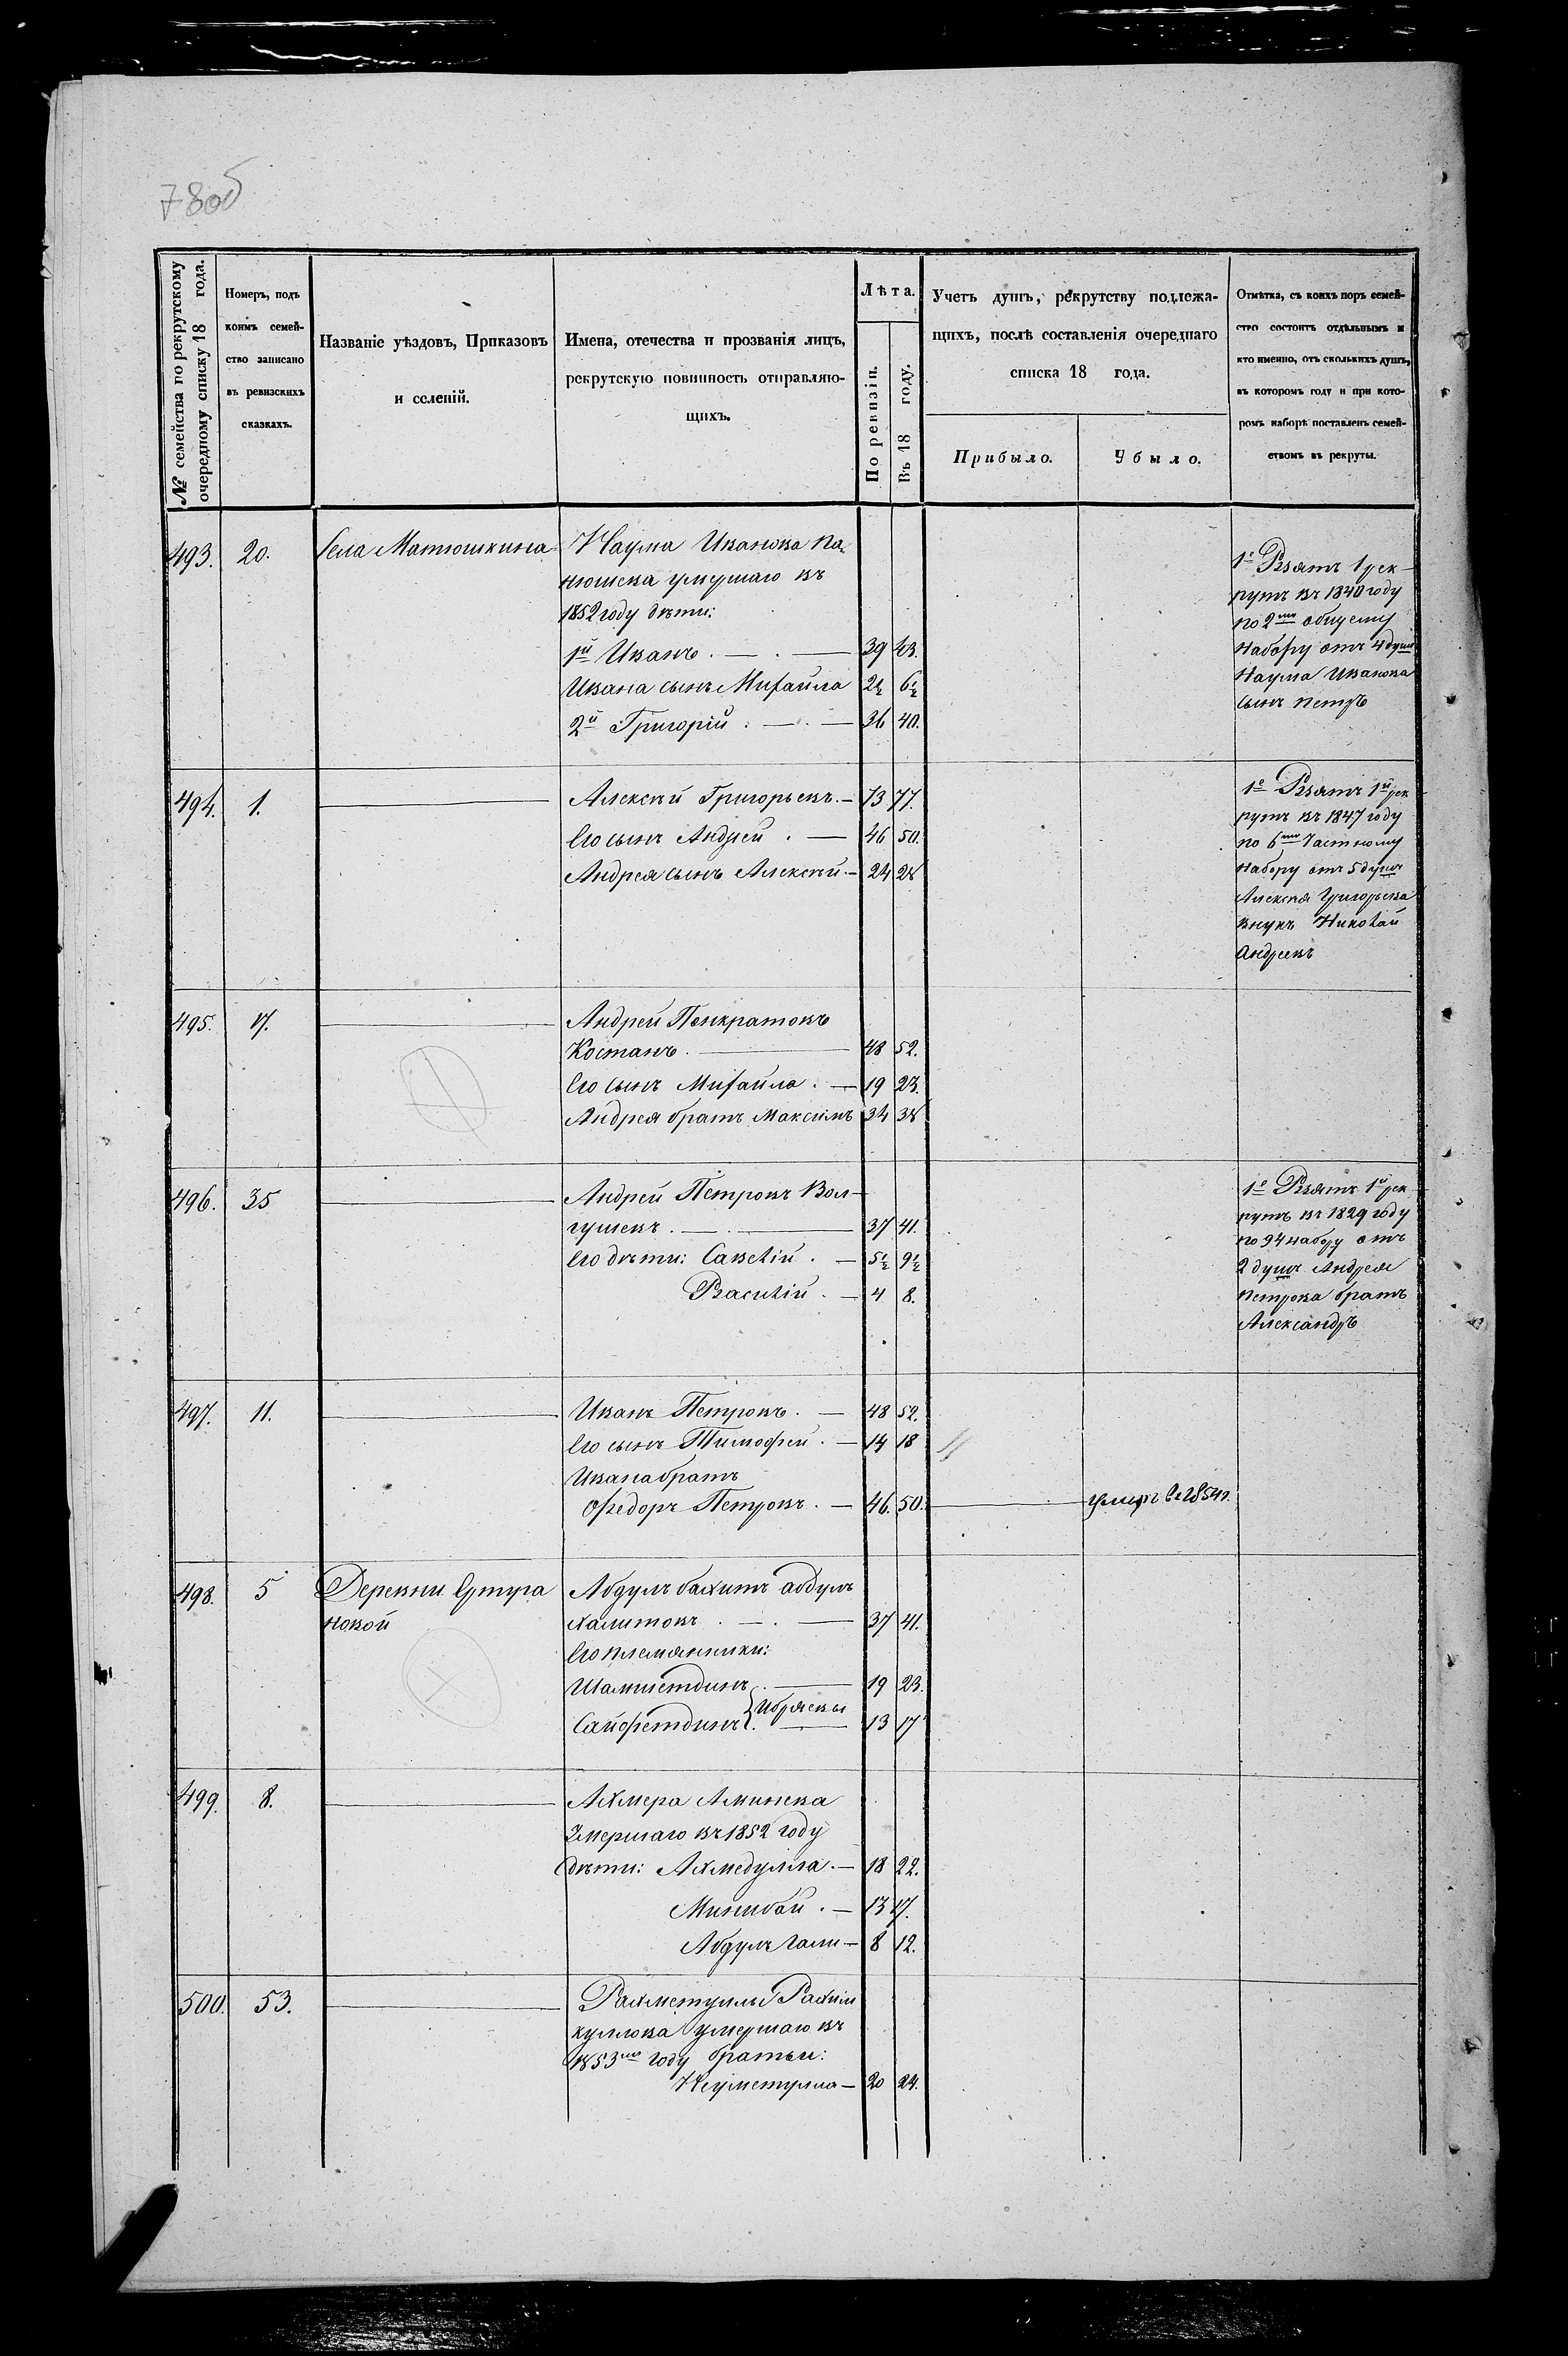 78об
№ семейства по рекрутскому
очередному списку 18 года.
Номеръ, подъ
коимъ семей-
ство записано
въ ревизскихъ
сказкахъ.
Названіе уѣздовъ, Приказовъ
и селеній.
Имена, отечества и прозванія лицъ,
рекрутскую повинность отправляю-
щихъ.
Лѣта.
По ревизіи.
Въ 18 году.
Учетъ душъ, рекрутству подлежа-
щихъ, послѣ составленія очереднаго
списка 18 года.
Прибыло.
Убыло.
Отмѣтка, съ коихъ поръ семей-
ство состоитъ отдѣльнымъ и
кто именно, отъ сколькихъ душъ,
въ которомъ году и при кото-
ромъ наборѣ поставленъ семей-
ствомъ въ рекруты.
493. 20. Села Матюшкина Наума Иванова Па-
нюшева умершаго въ
1852 году дѣти:
1й Иванъ. 39 43.
Ивана сынъ Михайла 2½ 6½
2й Григорій. 36 40.
1е Взятъ 1 рек-
рутъ въ 1840 году
по 2му общему
набору отъ 4 душъ
Наума Иванова
сынъ Петръ
494. 1. Алексѣй Григорьевъ. 73 77.
Его сынъ Андрей. 46 50.
Андрея сынъ Алексѣй. 24 28
1е Взятъ 1й рек
рутъ въ 1847 году
по 6му частному
набору отъ 5 душъ
Алексѣя Григорьева
внукъ Николай
Андреевъ
495. 17. Андрей Панкратовъ
Костанъ. 48 52.
Его сынъ Михайла. 19 23.
Андрея братъ Максимъ 34 38
496. 35 Андрей Петровъ Вол-
гушевъ. 37 41.
Его дѣти: Савелій. 5½ 9½
Василій. 4 8.
1е Взятъ 1й рек
рутъ въ 1829 году
по 94 набору отъ
2 душъ Андрея
Петрова братъ
Александръ
497. 11. Иванъ Петровъ. 48 52.
Его сынъ Тимофей. 14 18
Ивана братъ
Федоръ Петровъ. 46. 50. умеръ въ 1854 г.
498. 5 Деревни Ертуга
новой Абдулъ бахитъ абдулъ
халитовъ. 37 41.
Его племянники:
Шамшетдинъ. 19 23.
Сайфетдинъ. Ибряевы 13 17
499. 8. Ахмера Аминева
Умершаго въ 1852 году
дѣти: Ахмедулла. 18 22.
Минибай. 13 17.
Абдулъ Гали 8 12.
500. 53. Рахметуллы Рахим
куллова умершаго въ
1853мъ году братья:
Неуметулла 20 24.